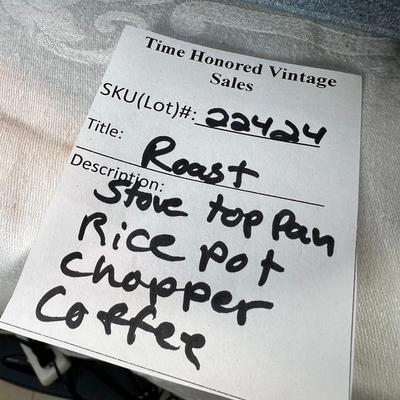 Time Honored Vintage
Sales
SKU(Lot)#: 22424
Title: Roast
Description:
Stove top Pan
Rice pot
Chopper
Coffee